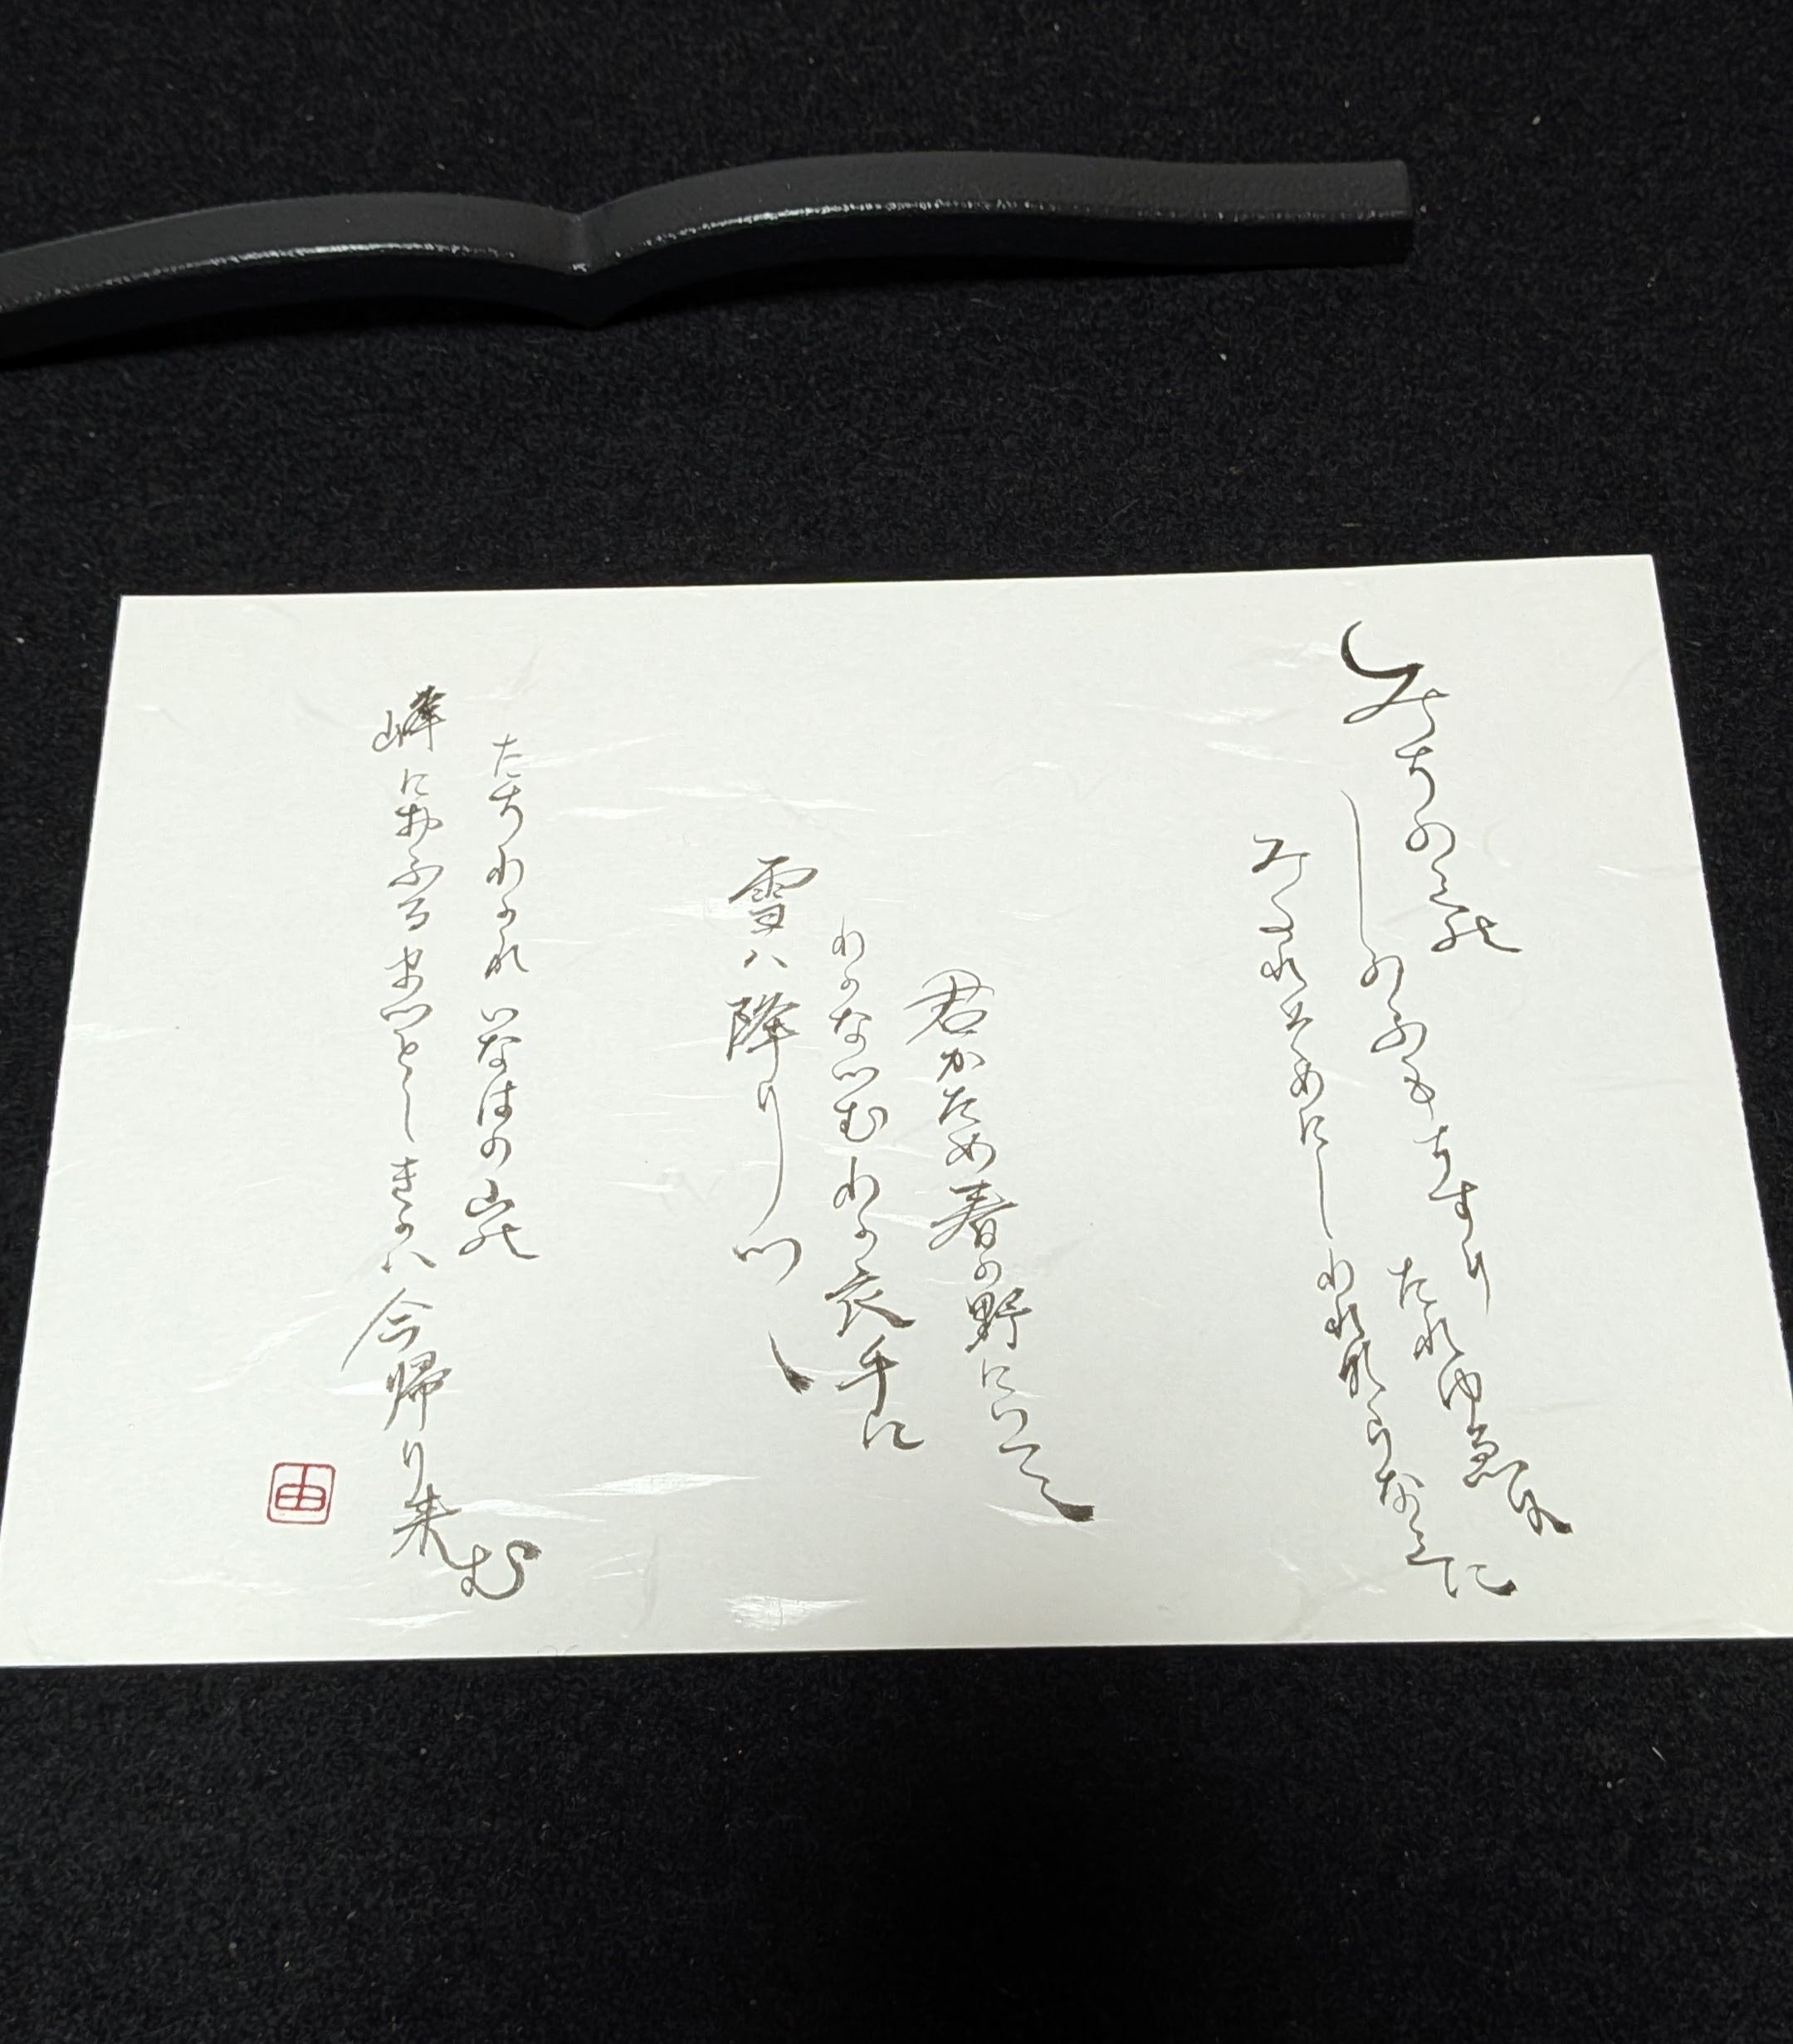 みちのくの
しのふもちすり たれゆゑに
みたれそめにしわれならなくに
君かため春の野にいてゝ
わかなつむわか衣手に
雪ハ降りつゝ
たちわかれいなはの山の
峰におふるまつとしきかハ今帰り来む
由